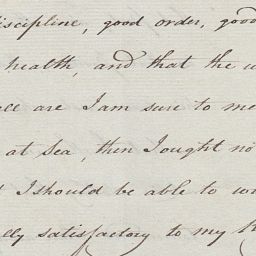 discipline, good order, good
health, and that the w
are I am sure to me
at Sea, then I ought no
I should be able to wr
lly satisfactory to my